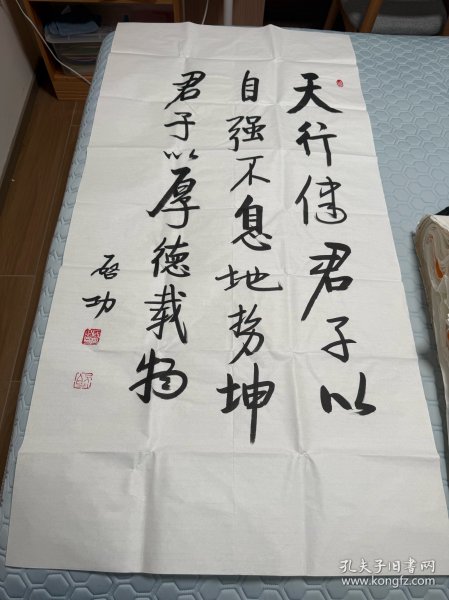 天行健君子以
自强不息地势坤
君子以厚德载物
启功
孔夫子旧书网
www.kongfz.com